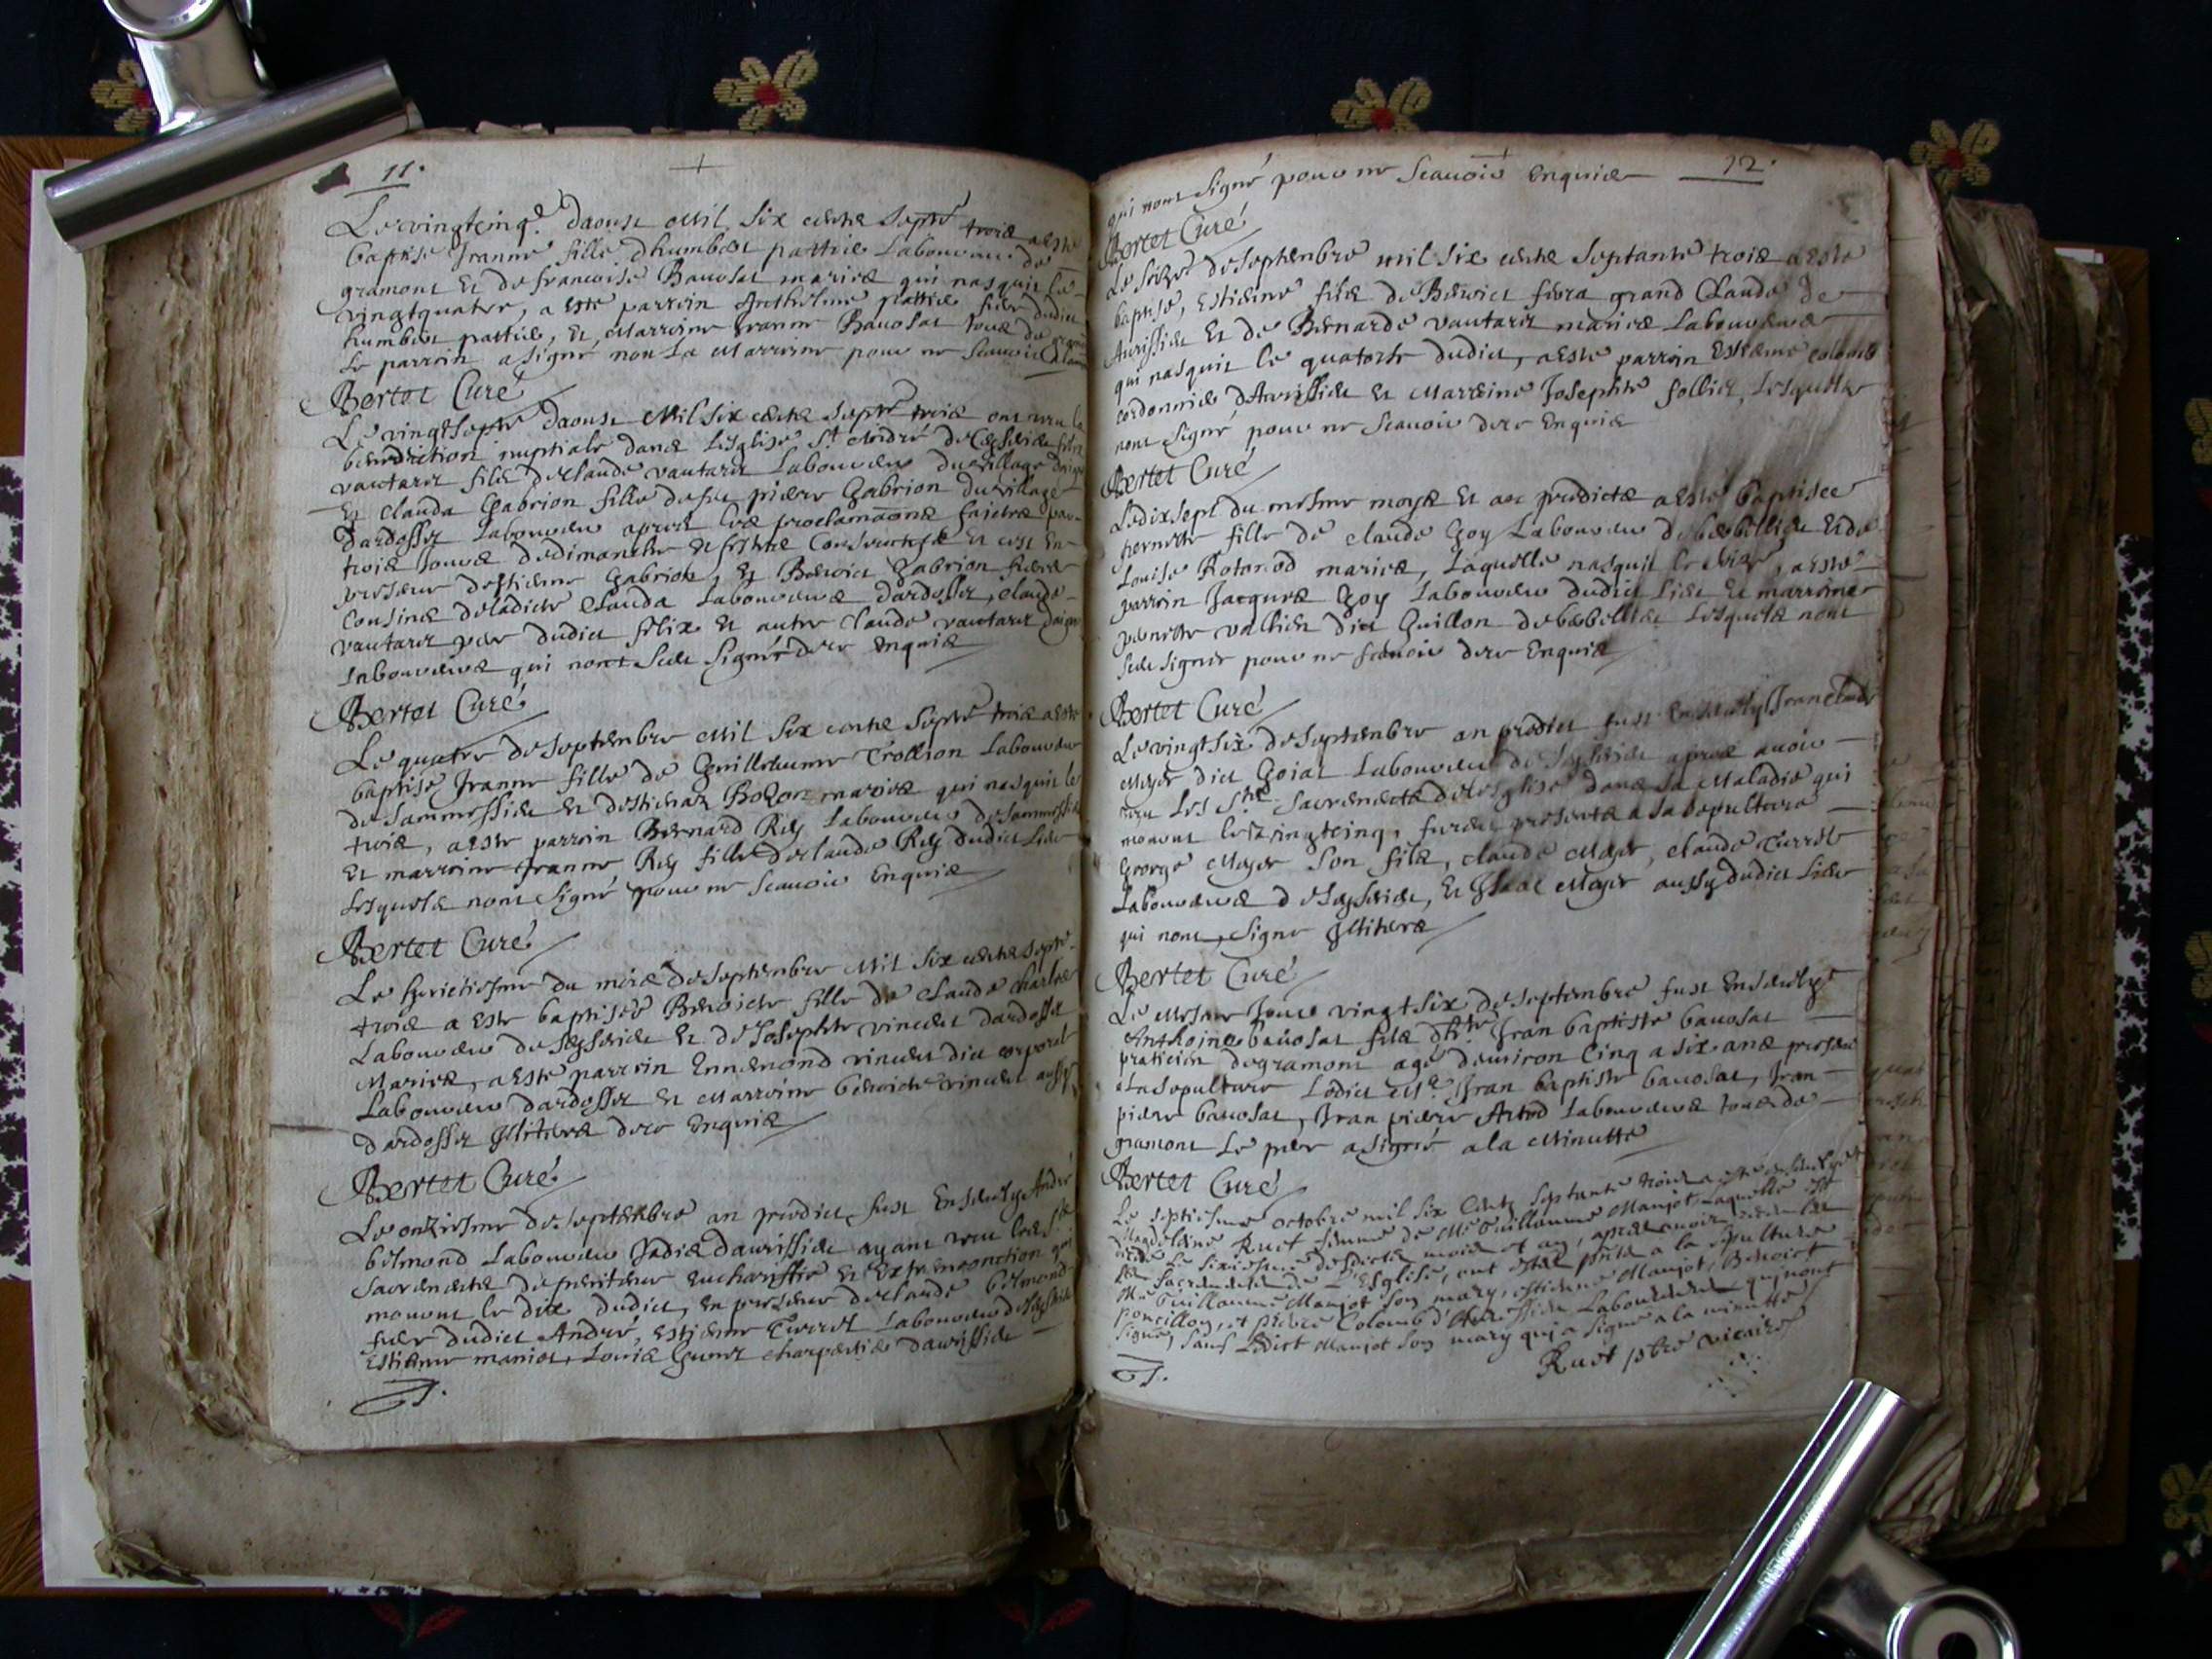 11.
Le vingtcinqe daoust Mil six cents septte trois a este
baptisé Jeanne fille dhumbert pattie Laboureur de
gramont et de francoise Bauosat mariés qui nasquit le
vingtquatre, a este parrein Anthelme pattie frere dudict
humbert pattie, et Marreine Jeanne Bauosat tous de
Le parrein a signé non La Marreine pour ne scauoir
Bertet Curé
Le vingtsepte daoust Mil six cents septte trois ont receu la
benediction nuptiale dans Lesglise St André de Ceyserieu felix
vautaret fils de claude vautaret Laboureur du village
Et clauda Gabrion fille de feu pierre Gabrion du village
dardosset Laboureur apres les proclamaons faictes par
trois jours de dimanche et festes Consecutifs et ce en
presence destienne Gabrion, et Benoict Gabrion freres
Cousins de ladicte Clauda Laboureurs dardosset, claude
vautaret pere dudict felix et autre claude vautaret
Laboureurs qui nont sceu signer de ce enquis
Bertet Curé
Le quatre de septembre Mil six cents septte trois a este
baptisé Jeanne fille de Guillelaume Trollion Laboureur
de Sammessieu et destienaz Bozon mariés qui nasquit le
trois, a este parrein Bernard Rey Laboureur de Sammessieu
Et marreine Jeanne Rey fille de claude Rey dudict Lieu
Lesquels nont signé pour ne scauoir Enquis
Bertet Curé
Le huictiesme du mois de septembre Mil six cents septte
trois a este baptisée Benoicte fille de Claude charles
Laboureur de Ceyserieu et de Josephte vincent dardosset
Mariés, a este parrein Ennemond vincent dict corporal
Laboureur dardosset et Marreine benoicte vincent aussy
dardosset Illiteres de ce enquis
Bertet Curé
Le onziesme de septembre an predict fust Enseuely André
belmond Laboureur Jadis daurissieu ayant receu les sts
Sacrements de penitence Eucharistie et Extremeonction qui
mourut le dix dudict, en presence de claude belmond
frere dudict André, Estienne Turret Laboureur de Ceyserieu
Estienne maniet, Louis Gunet charpentier daurissieu
12.
qui nont signé pour ne scauoir enquis
Bertet Curé
Le seize de septembre mil six cents septante trois a este
baptisé, Estienne fils de Benoict feura grand Claude de
Aurissieu et de Bernarde vautaret mariés Laboureurs
qui nasquit le quatorze dudict, a este parrein Estienne colomb
cordonnier dAurissieu et Marreine Josephte follier, Lesquelles
nont signé pour ne scauoir de ce enquis
Bertet Curé
Le dixsept du mesme moys et an predicts a este baptisee
pernette fille de claude Goy Laboureur de berbellieu et de
Louise Rotarod mariés, Laquelle nasquit le seize, a este
parrein Jacques Goy Laboureur dudict Lieu et marreine
pernette vallier dict Guillon de berbellieu Lesquels nont
sceu signer pour ne scauoir de ce enquis
Bertet Curé
Le vingtsix de septembre an predict fust enseuely Jeanclaude
Meyer dict Goiat Laboureur de Ceyserieu apres auoir
receu Les sts Sacrements de lesglise dans sa Maladie qui
mourut le vingtcinq, furent presents a sa sepulture
George Meyer son fils, claude Meyer, claude Turret
Laboureurs de Ceyserieu, et Isaac Meyer aussy dudict Lieu
qui nont signé Illiteres
Bertet Curé
Le Mesme Jour vingtsix de septembre fust Enseuely
Anthoine bauosat fils de Mre Jean baptiste bauosat
praticien de gramont agé denuiron Cinq a six ans presens
a La sepulture Ledict Mre Jean baptiste bauosat, Jean
pierre bauosat, Jean pierre Artod Laboureurs tous de
gramont Le pere a signé a la Minutte
Bertet Curé
Le septiesme octobre mil six Cents septante trois a esté enseuelye
Magdeleine Ruet femme de Me Guillaume Maniot Laquelle est
decedée Le sixiesme desdicts mois et an, apres auoir receu les
sts Sacrements de L'Esglise, ont estés pnts a la sepulture
Me Guillaume Maniot son mary, estienne Maniot, Benoict
Poncillon, et pierre Colomb d'Aurissieu Laboureurs qui nont
signé, sauf Ledict Maniot son mary qui a signé a la minutte
Ruet ptre vicaire